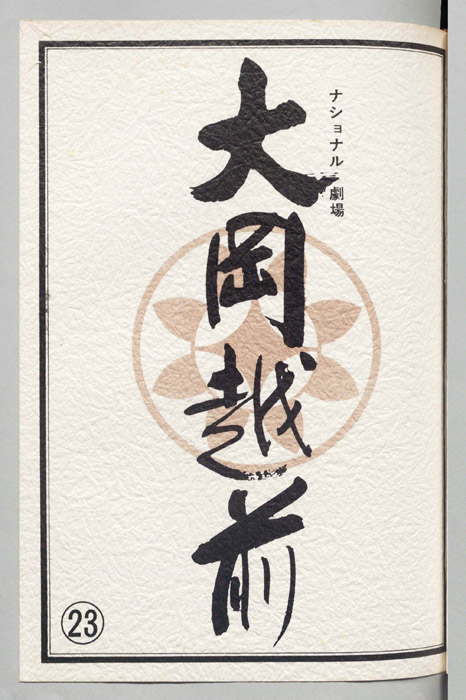 ナショナル劇場
大岡越前
㉓